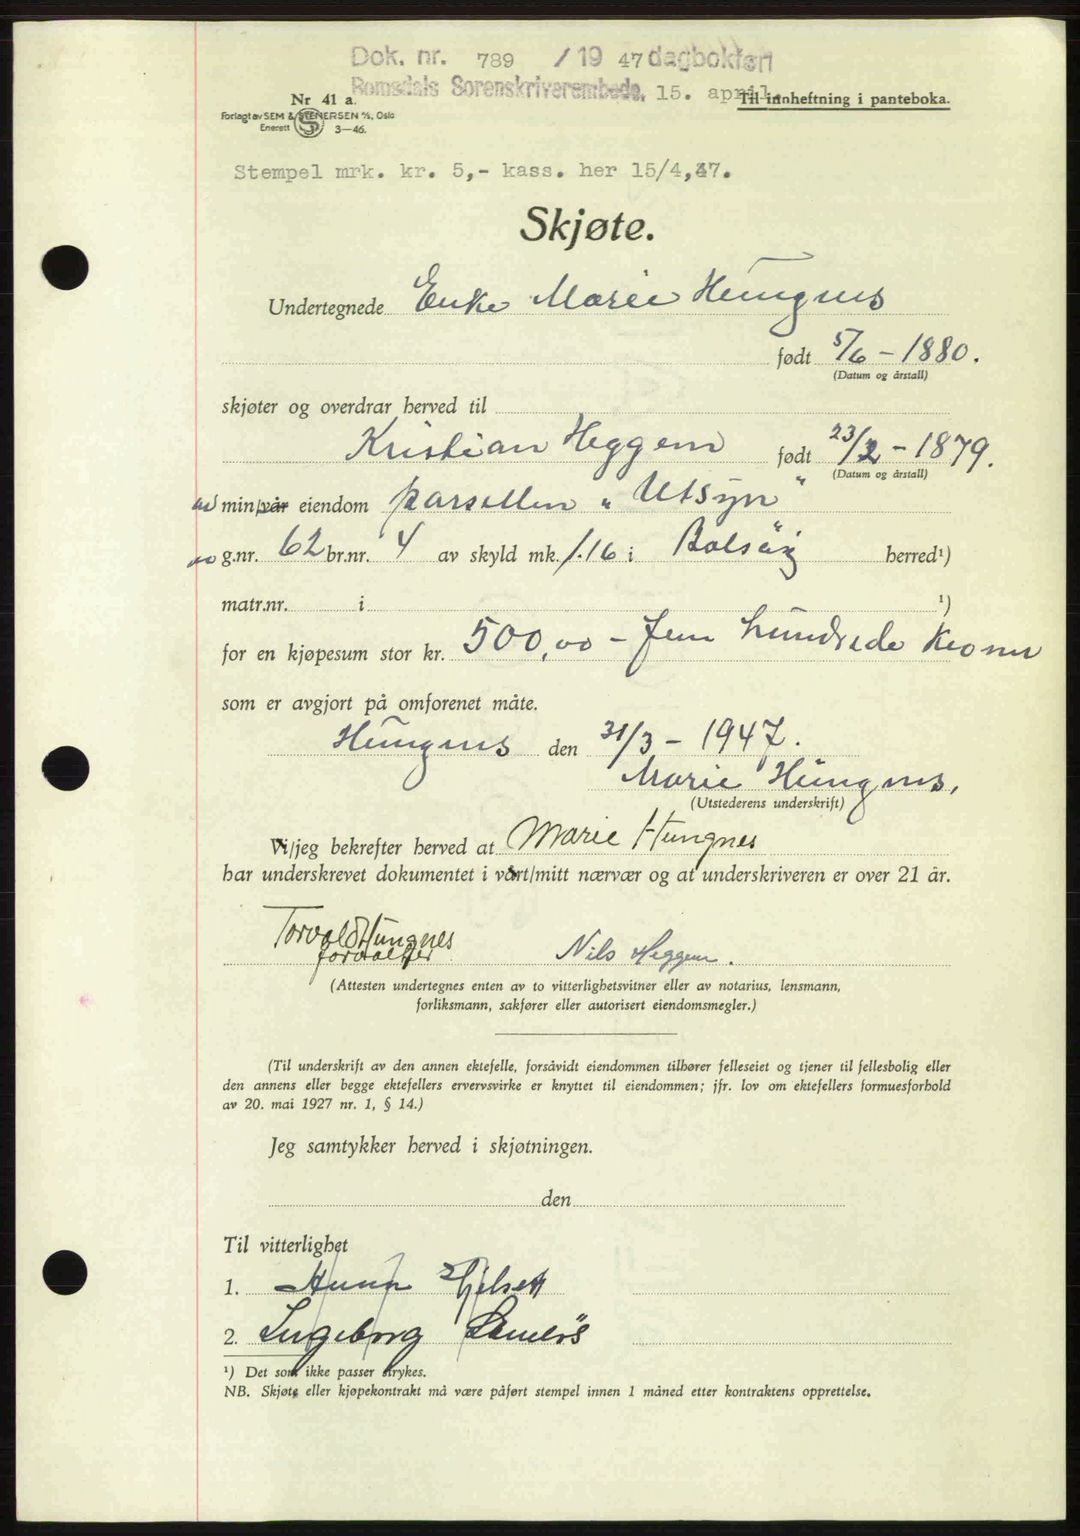 Dok. nr. 789 /19 47 dagbokført
Romsdals Sorenskriverembede, 15. april.
Nr 41 a.
Til innheftning i panteboka.
Forlagt av SEM & STENERSEN A/S, Oslo
Enerett 3-46.
Stempel mrk. kr. 5,- kass. her 15/4,47.
Skjøte.
Undertegnede Enke Marie Hungnes
født 5/6 - 1880.
(Datum og årstall)
skjøter og overdrar herved til
Kristian Heggem født 23/2 - 1879.
(Datum og årstall)
min/vår eiendom parsellen "Utsyn"
g.nr. 62 br.nr. 4 av skyld mk. 1.16 i Bolsøy herred¹)
matr.nr. i ¹)
for en kjøpesum stor kr. 500,00 - Fem hundrede Kroner
som er avgjort på omforenet måte.
Hungnes den 31/3 - 1947.
Marie Hungnes.
(Utstederens underskrift)
Vi/jeg bekrefter herved at Marie Hungnes
har underskrevet dokumentet i vårt/mitt nærvær og at underskriveren er over 21 år.
Torvald Hungnes
forvalter Nils Heggem.
(Attesten undertegnes enten av to vitterlighetsvitner eller av notarius, lensmann,
forliksmann, sakfører eller autorisert eiendomsmegler.)
(Til underskrift av den annen ektefelle, forsåvidt eiendommen tilhører felleseiet og tjener til fellesbolig eller
den annens eller begge ektefellers ervervsvirke er knyttet til eiendommen; jfr. lov om ektefellers formuesforhold
av 20. mai 1927 nr. 1, § 14.)
Jeg samtykker herved i skjøtningen.
den
Til vitterlighet
1.
2. Ingeborg
¹) Det som ikke passer strykes.
NB. Skjøte eller kjøpekontrakt må være påført stempel innen 1 måned etter kontraktens opprettelse.